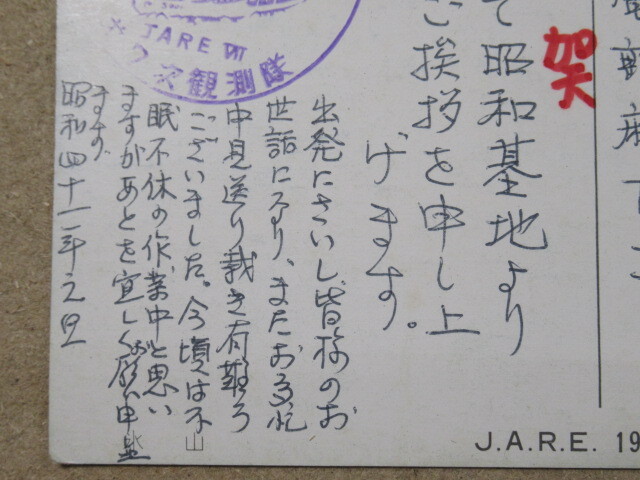 賀
て昭和基地より
ご挨拶を申し上
げます。
出発にさいし皆様のお
世話になり、またお多忙
中見送り戴き有難う
ございました。今頃は不
眠不休の作業中と思い
ますがあとを宜しくお願い申上
ます
昭和四十二年元旦
JARE VIII
次観測隊
J.A.R.E. 19